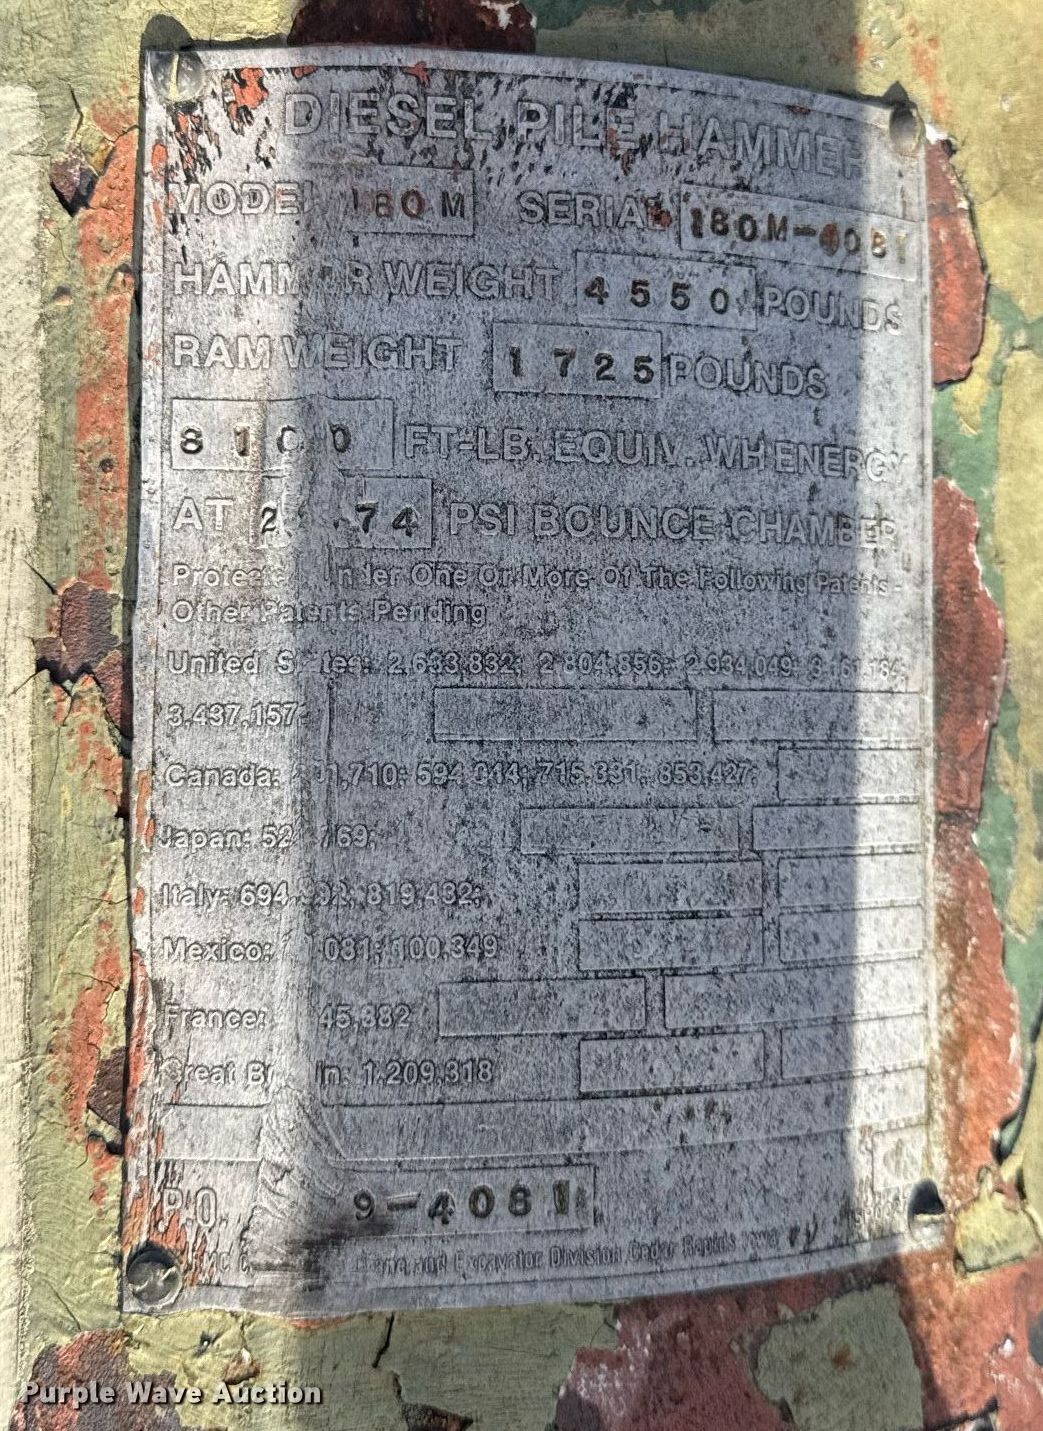 DIESEL PILE HAMMER
MODEL 180M SERIAL 180M-4081
HAMMER WEIGHT 4550 POUNDS
RAM WEIGHT 1725 POUNDS
8100 FT-LB. EQUIV. WH ENERGY
AT 74 PSI BOUNCE CHAMBER
Protected Under One Or More Of The Following Patents -
Other Patents Pending
United States: 2,633,832; 2,804,856; 2,934,049; 3,161,184;
3,437,157;
Canada: 594,344; 715,331; 853,427;
Japan:
Italy: 819,432;
Mexico: 100,349
France:
Great Britain: 1,209,318
P.O. 9-4081
Crane and Excavator Division Cedar Rapids Iowa
Purple Wave Auction